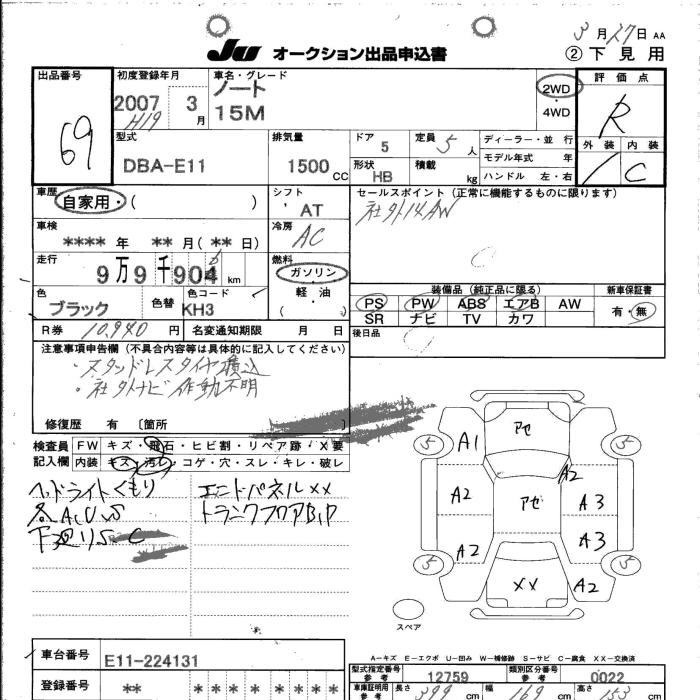 3月27日 AA
JU オークション出品申込書 ②下見用
出品番号 初度登録年月 車名・グレード 評価点
69 2007 3月 ノート 2WD R
H19 15M 4WD
外装 内装
型式 排気量 ドア 5 定員 5人 ディーラー・並行
DBA-E11 1500CC 形状 HB 積載 kg モデル年式 年
ハンドル 左・右 C
車歴 自家用・( ) シフト AT セールスポイント(正常に機能するものに限ります)
社外14AW
車検 **** 年 ** 月(** 日) 冷房 AC
走行 9万9千904km 燃料 ガソリン
軽・油
( )
色 ブラック 色替 色コード KH3
装備品(純正品に限る) 新車保証書
PS PW ABS エアB AW 有・無
SR ナビ TV カワ
R券 10,940円 名変通知期限 月 日 後日品
注意事項申告欄(不具合内容等は具体的に記入してください)
・スタッドレスタイヤ積込
・社外ナビ作動不明
修復歴 有 〔箇所
検査員記入欄 FW キズ・飛石・ヒビ割・リペア跡・X要
内装 キズ・汚レ・コゲ・穴・スレ・キレ・破レ
ヘッドライトくもり エンドパネルXX
各A.U.S トランクフロアB,P
下廻りS.C
5 A1 アセ 5
A2 A2 アセ A3
A2 A3
5 XX A2 5
スペア
A-キズ E-エクボ U-凹み W-補修跡 S-サビ C-腐食 XX-交換済
車台番号 E11-224131
型式指定番号 参考 12759 類別区分番号 参考 0022
登録番号 ** * * * * * * *
車庫証明用 参考 長さ 399cm 幅 169cm 高さ 153cm